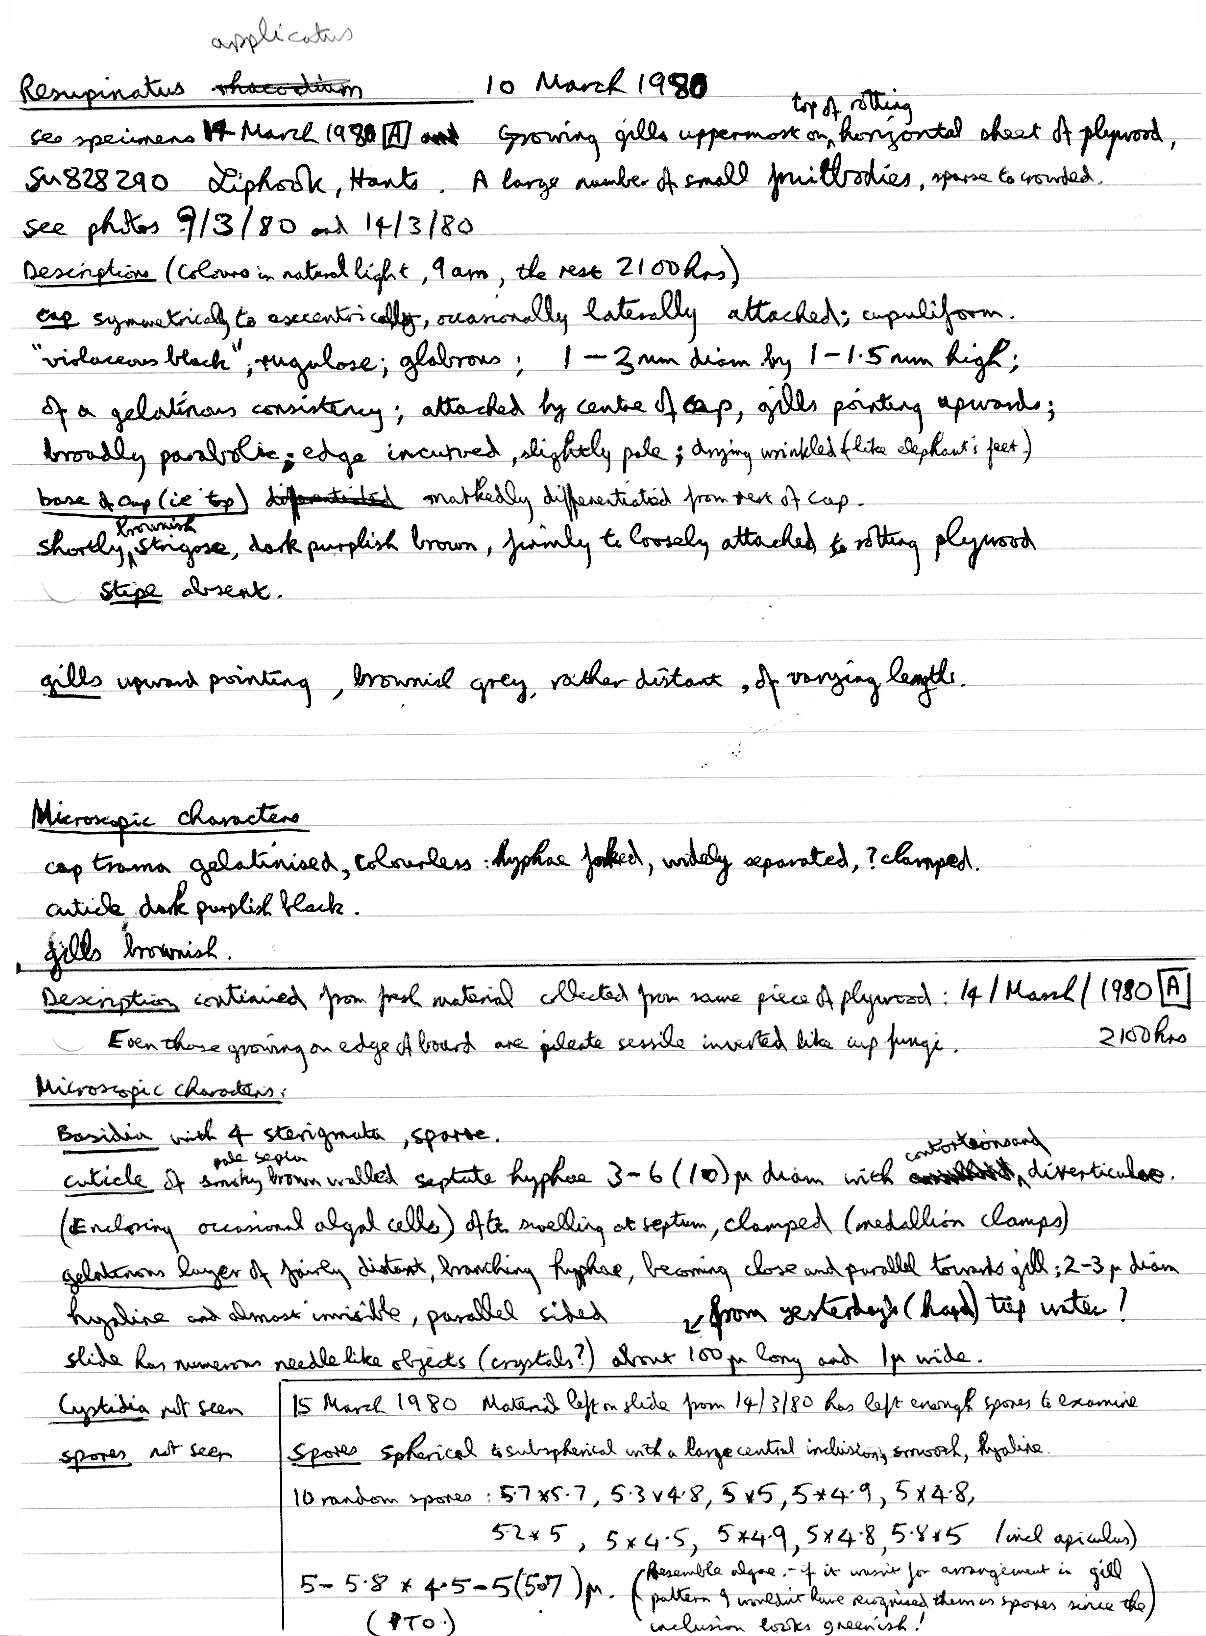 applicatus
Resupinatus rhacodium 10 March 1980
top of rotting
see specimens 14 March 1980 [A] and Growing gills uppermost on horizontal sheet of plywood,
SU828290 Liphook, Hants. A large number of small fruitbodies, sparse to crowded.
see photos 9/3/80 and 14/3/80
Description (colours in natural light, 9am, the rest 2100hrs)
cap symmetrically to excentrically, occasionally laterally attached; cupuliform.
"violaceous black", rugulose; glabrous; 1-3mm diam by 1-1.5mm high;
of a gelatinous consistency; attached by centre of cap, gills pointing upwards;
broadly parabolic; edge incurved, slightly pale; drying wrinkled (like elephant's feet)
base of cap (ie top) differentiated markedly differentiated from rest of cap.
brownish
shortly strigose, dark purplish brown, firmly to loosely attached to rotting plywood
Stipe absent.
gills upward pointing, brownish grey, rather distant, of varying length.
Microscopic characters
cap trama gelatinised, colourless: hyphae forked, widely separated, ? clamped.
cuticle dark purplish black.
gills brownish.
Description continued from fresh material collected from same piece of plywood: 14/March/1980 [A]
Even those growing on edge of board are pileate sessile inverted like cup fungi. 2100hrs
Microscopic characters:
Basidia with 4 sterigmata, sparse.
pale septa contortions and
cuticle of smoky brown walled septate hyphae 3-6(10)µ diam with diverticulae.
(Enclosing occasional algal cells) often swelling at septum, clamped (medallion clamps)
gelatinous layer of fairly distant, branching hyphae, becoming close and parallel towards gill; 2-3µ diam
hyaline and almost invisible, parallel sided ↙ from yesterday's (hard) tap water!
slide has numerous needle like objects (crystals?) about 100µ long and 1µ wide.
Cystidia not seen
spores not seen
15 March 1980 Material left on slide from 14/3/80 has left enough spores to examine
Spores spherical to subspherical with a large central inclusion, smooth, hyaline.
10 random spores: 5.7×5.7, 5.3×4.8, 5×5, 5×4.9, 5×4.8,
5.2×5, 5×4.5, 5×4.9, 5×4.8, 5.8×5 (incl apiculus)
5-5.8 × 4.5-5(5.7)µ. (Resemble algae - if it wasn't for arrangement in gill
pattern I wouldn't have recognised them as spores since the
inclusion looks greenish!)
(PTO.)